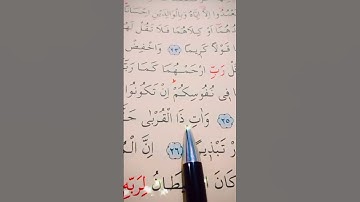 تَعْبُدُوا اِلَّا اِيَّاهُ وَبِالْوَالِدَيْنِ اِحْسَانًا
اَوْ كِلَاهُمَا فَلَا تَقُلْ لَهُمَا
قَوْلًا كَرِيمًا ٢٣ وَاخْفِضْ
رَبِّ ارْحَمْهُمَا كَمَا
فِى نُفُوسِكُمْ اِنْ تَكُونُوا
٢٥ وَاٰتِ ذَا الْقُرْبٰى
تَبْذِيرًا ٢٦ اِنَّ
كَانَ الشَّيْطَانُ لِرَبِّهِ